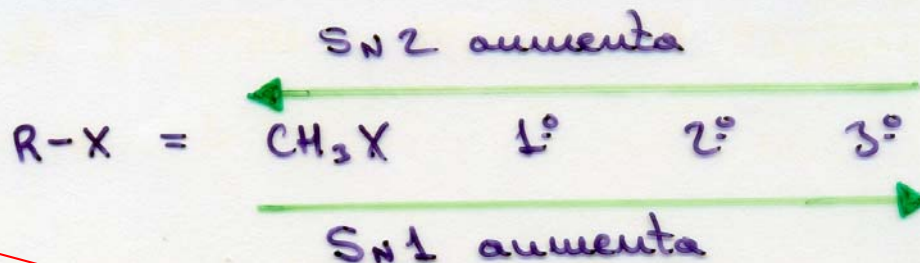 SN2 aumenta
R-X = CH3X 1º 2º 3º
SN1 aumenta